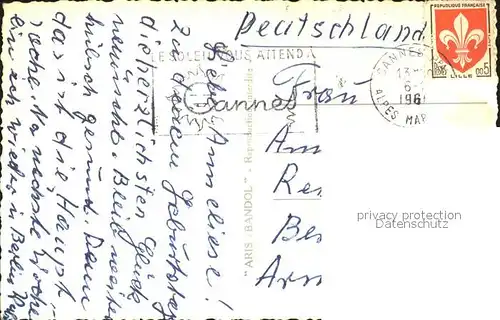 Deutschland
REPUBLIQUE FRANÇAISE
LILLE
0.05
LE SOLEIL VOUS ATTEND A
Cannes
CANNES
13
6
196
ALPES MAR
Frau
Am
Re
Be
Arn
privacy protection
Datenschutz
"ARIS" BANDOL" - Reproduction interdite
Liebe Anneliese!
Zu deinem Geburtstag
die herzlichsten Glück
wünsche. Bleib weiter
hübsch gesund. Denn
das ist die Haupt
sache. Na nächste Woche
bin ich wieder in Berlin